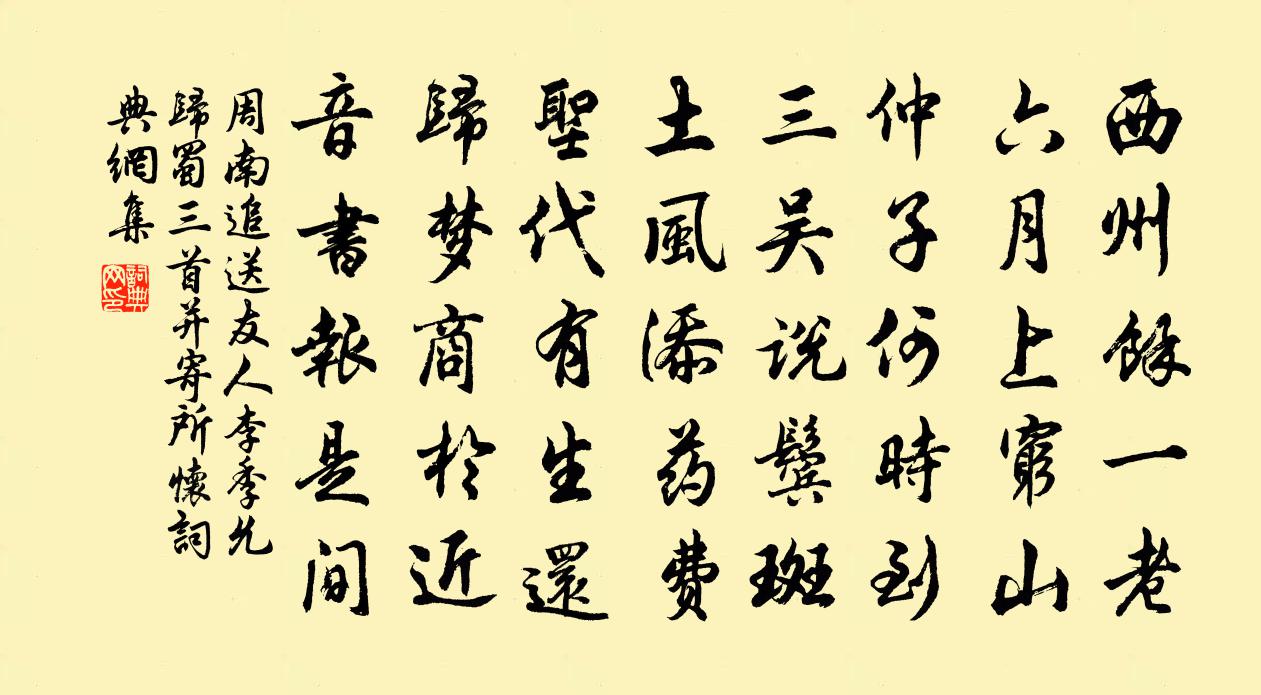 西州餘一老
六月上窮山
仲子何時到
三吴説鬓斑
土風添药費
聖代有生還
歸梦商於近
音書報是间
周南追送友人李季允
歸蜀三首并寄所懷詞
典網集
詞典网印